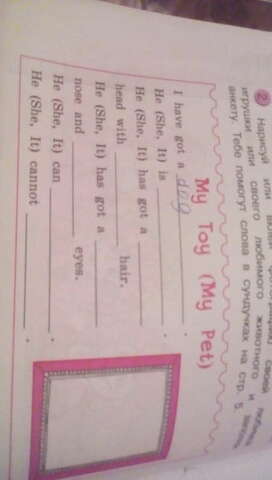 2 Нарисуй или
игрушки или своего любимого животного и
анкету. Тебе помогут слова в сундучках на стр. 5.
My Toy (My Pet)
I have got a dog.
He (She, It) is
He (She, It) has got a
head with hair.
He (She, It) has got a
nose and eyes.
He (She, It) can .
He (She, It) cannot .